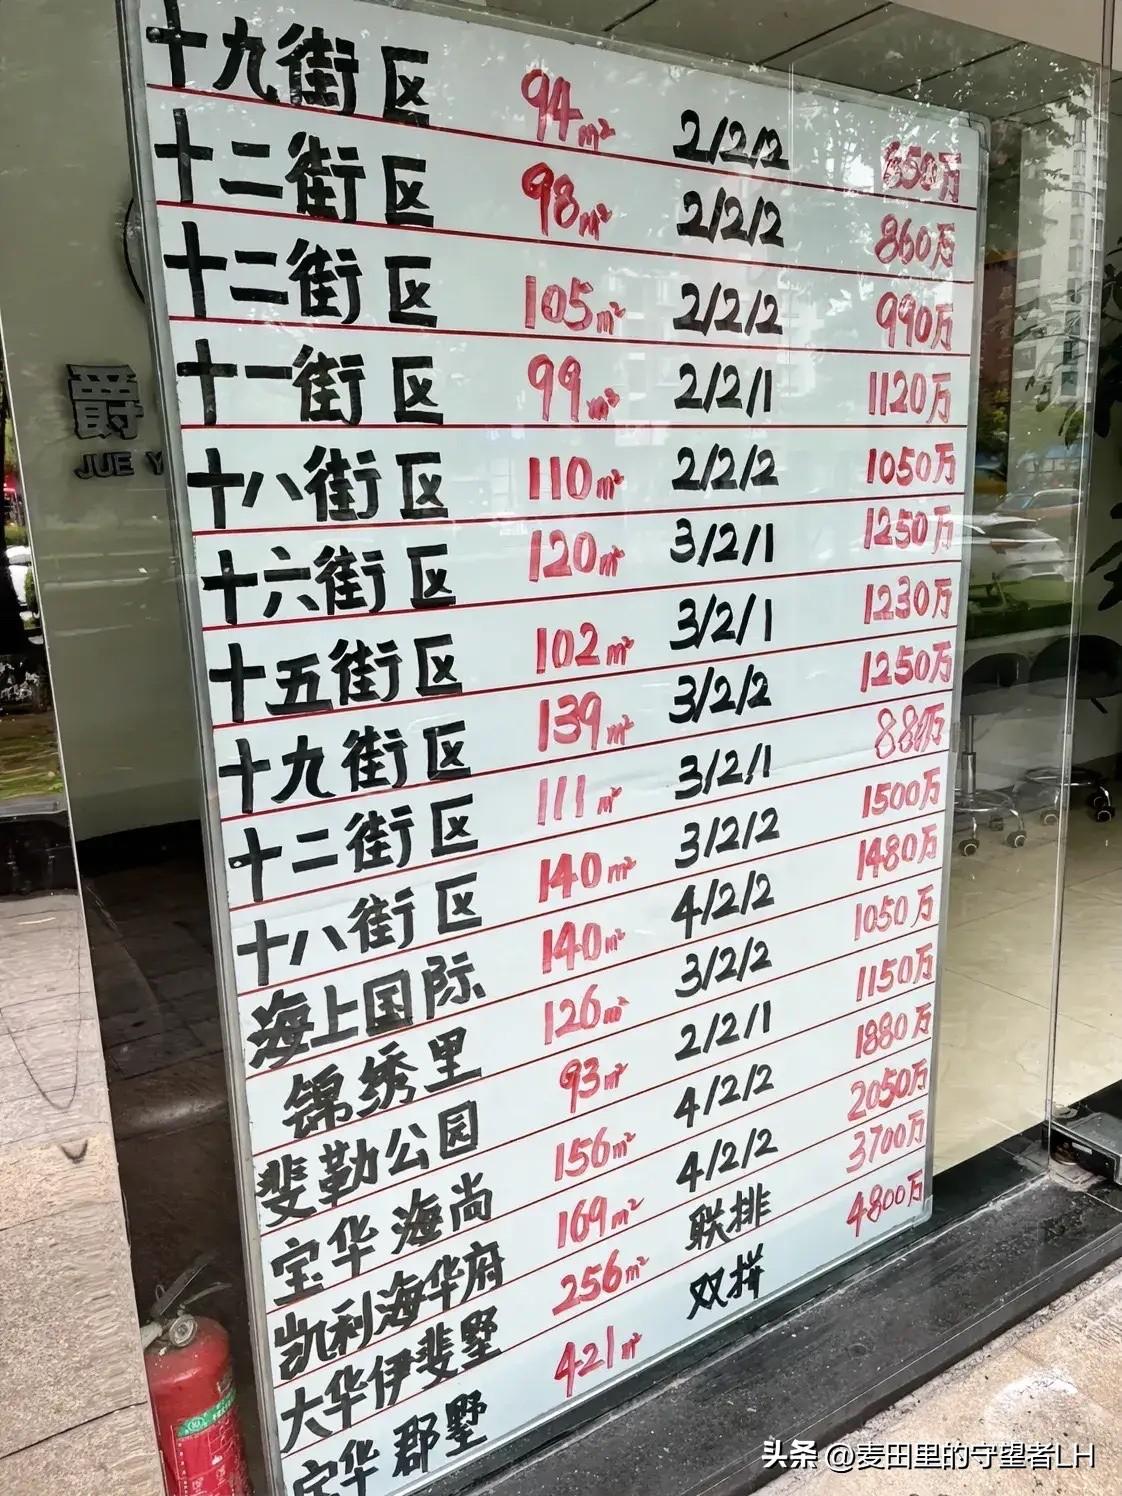 十九街区 94m² 2/2/2
十二街区 98m² 2/2/2 860万
十二街区 105m² 2/2/2 990万
十一街区 99m² 2/2/1 1120万
十八街区 110m² 2/2/2 1050万
十六街区 120m² 3/2/1 1250万
十五街区 102m² 3/2/1 1230万
十九街区 139m² 3/2/2 1250万
十二街区 111m² 3/2/1 880万
十八街区 140m² 3/2/2 1500万
海上国际 140m² 4/2/2 1480万
锦绣里 126m² 3/2/2 1050万
斐勒公园 93m² 2/2/1 1150万
宝华海尚 156m² 4/2/2 1880万
凯利海华府 169m² 4/2/2 2050万
大华伊斐墅 256m² 联排 3700万
宝华郡墅 421m² 双拼 4800万
爵
JUE Y
头条 @麦田里的守望者LH